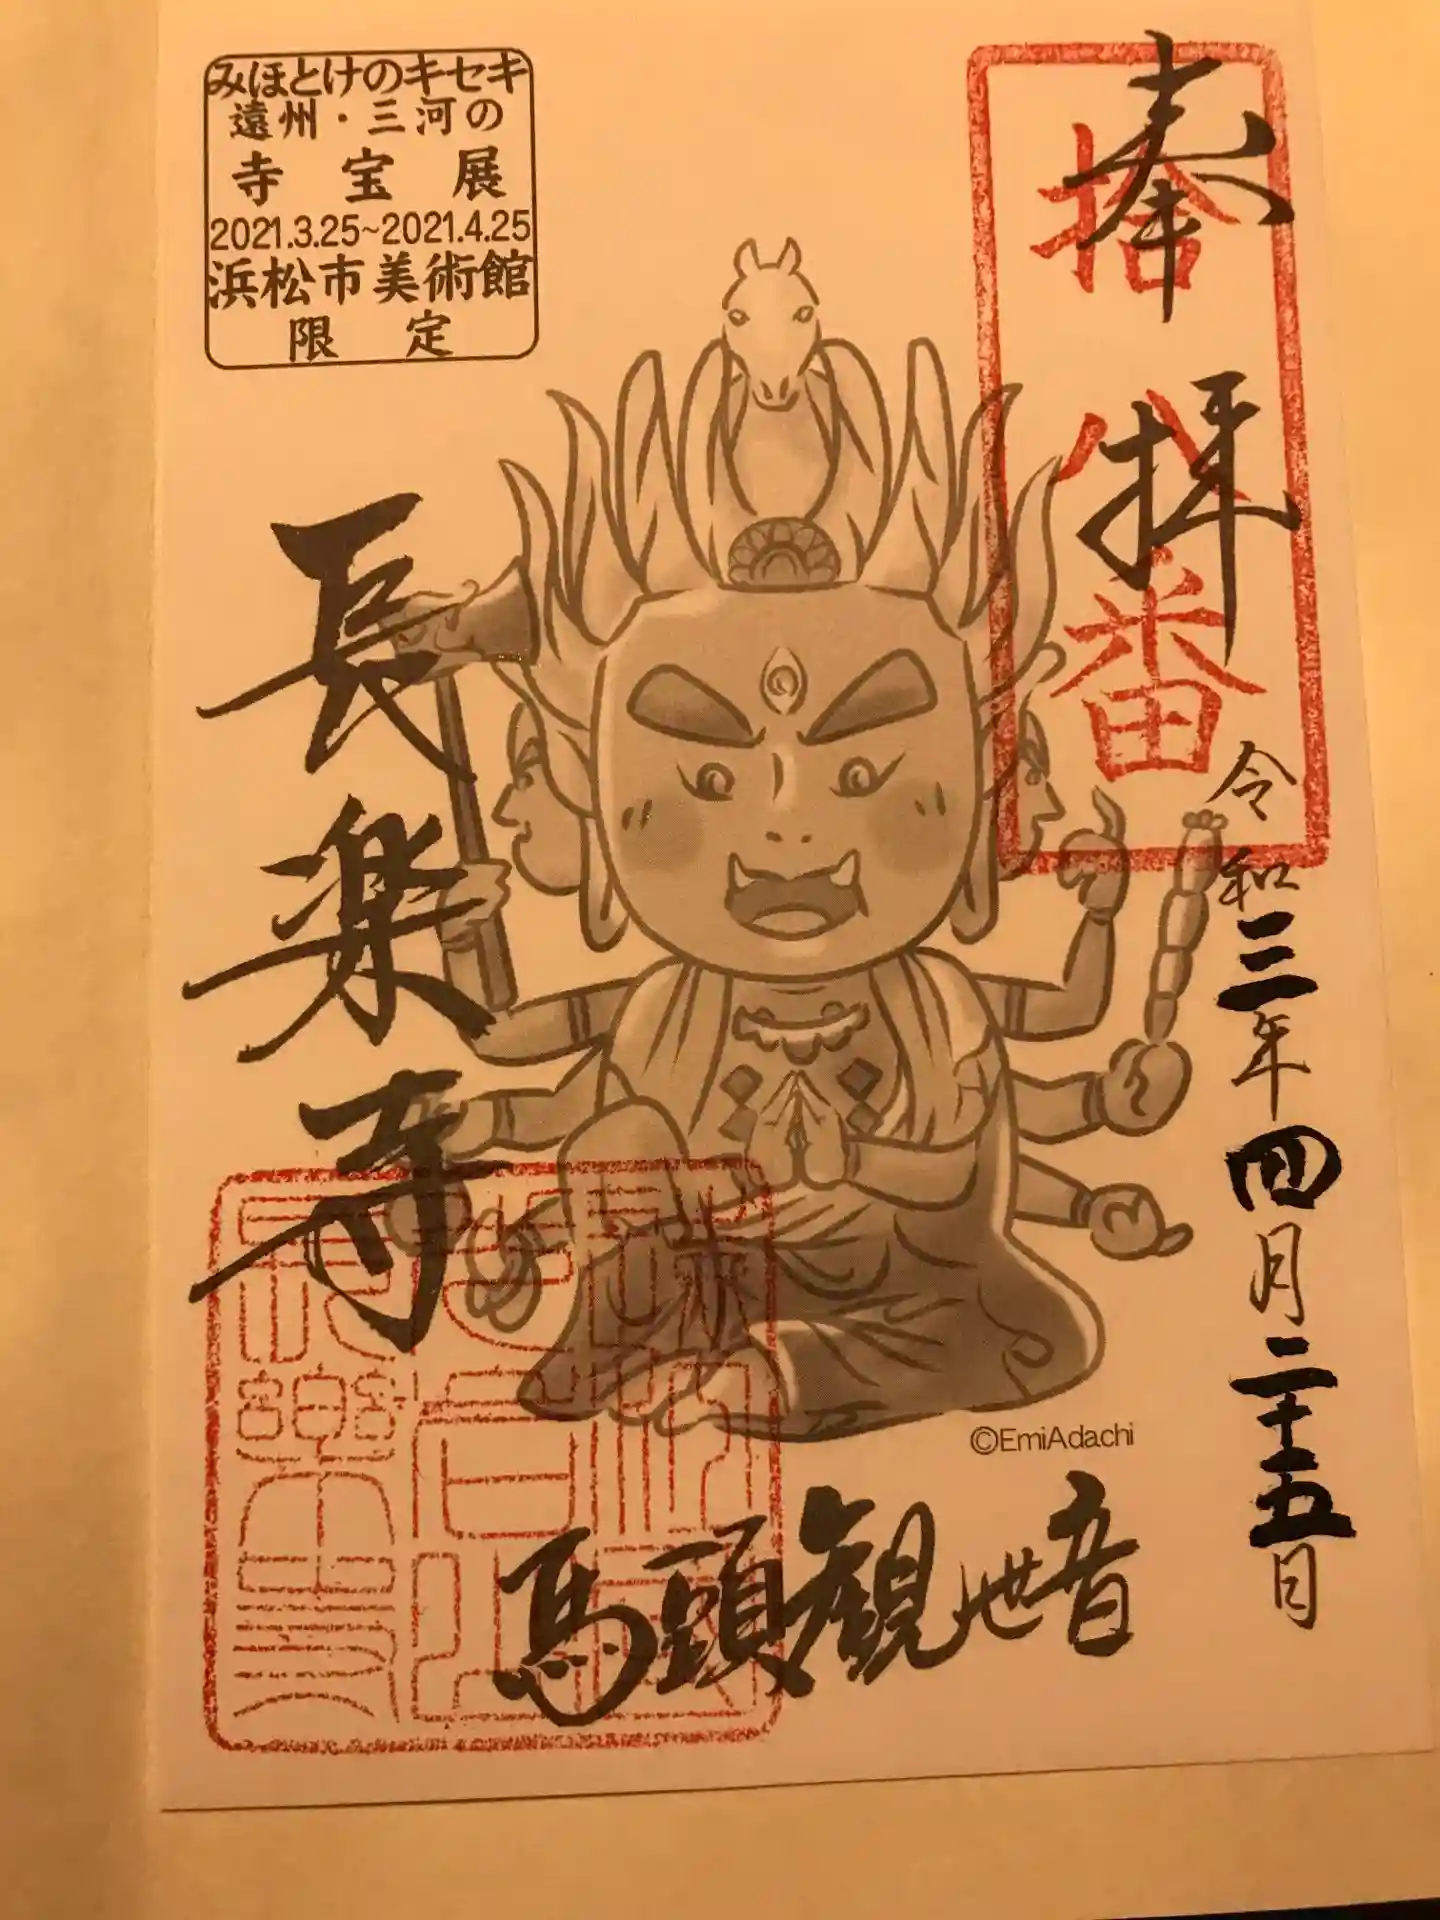 みほとけのキセキ
遠州・三河の
寺宝展
2021.3.25~2021.4.25
浜松市美術館
限定
奉拝
八番
令和三年四月二十五日
長楽寺
©EmiAdachi
馬頭観世音